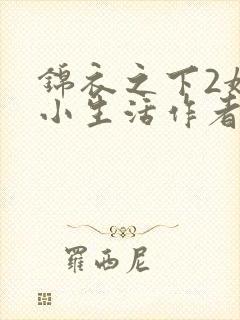 錦衣之下2
小生活作者
羅西尼